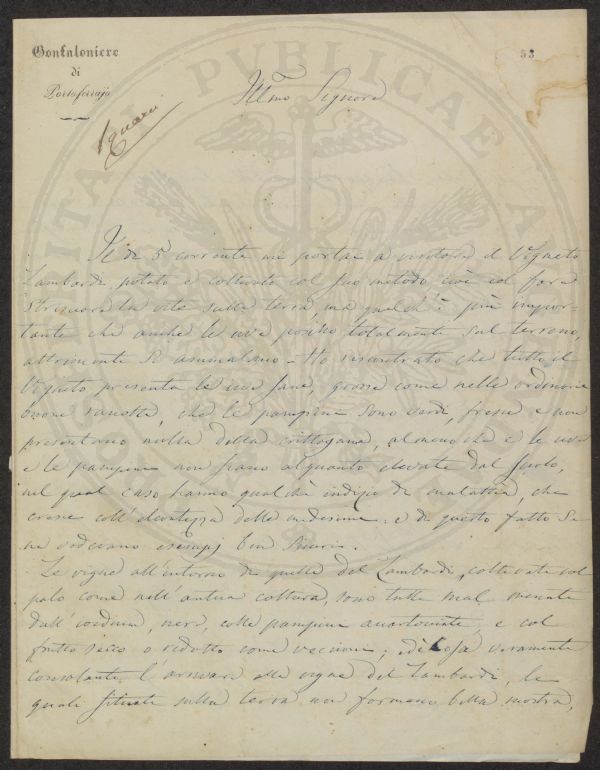 Gonfaloniere
di
Portoferrajo
53
Illmo Signore
Il dì 5 corrente mi portai a visitare il Vigneto
Lambardi, potato e coltivato col suo metodo, cioè col fare
strisciare la vite sulla terra, ma quel ch'è più impor-
tante che anche le uve posino totalmente sul terreno,
altrimenti si ammalano - Ho riscontrato che tutto il
Vigneto presenta le uve sane, grosse come nelle ordinarie
buone raccolte, che le pampine sono verdi, fresche e non
presentano nulla della crittogama, almeno che e le uve
e le pampine non siano alquanto elevate dal suolo,
nel qual caso hanno qualche indizio di malattia, che
cresce coll'elevatezza delle medesime, e di questo fatto se
ne vedevano esempj ben
Le vigne all'intorno di quelle del Lambardi, coltivate col
palo come nell'antica coltura, sono tutte mal menate
dall'oidium, nere, colle pampine accartocciate, e col
frutto secco o ridotto come veccioni; ed è cosa veramente
consolante l'arrivare alle vigne del Lambardi, le
quali situate sulla terra non formano bella mostra,